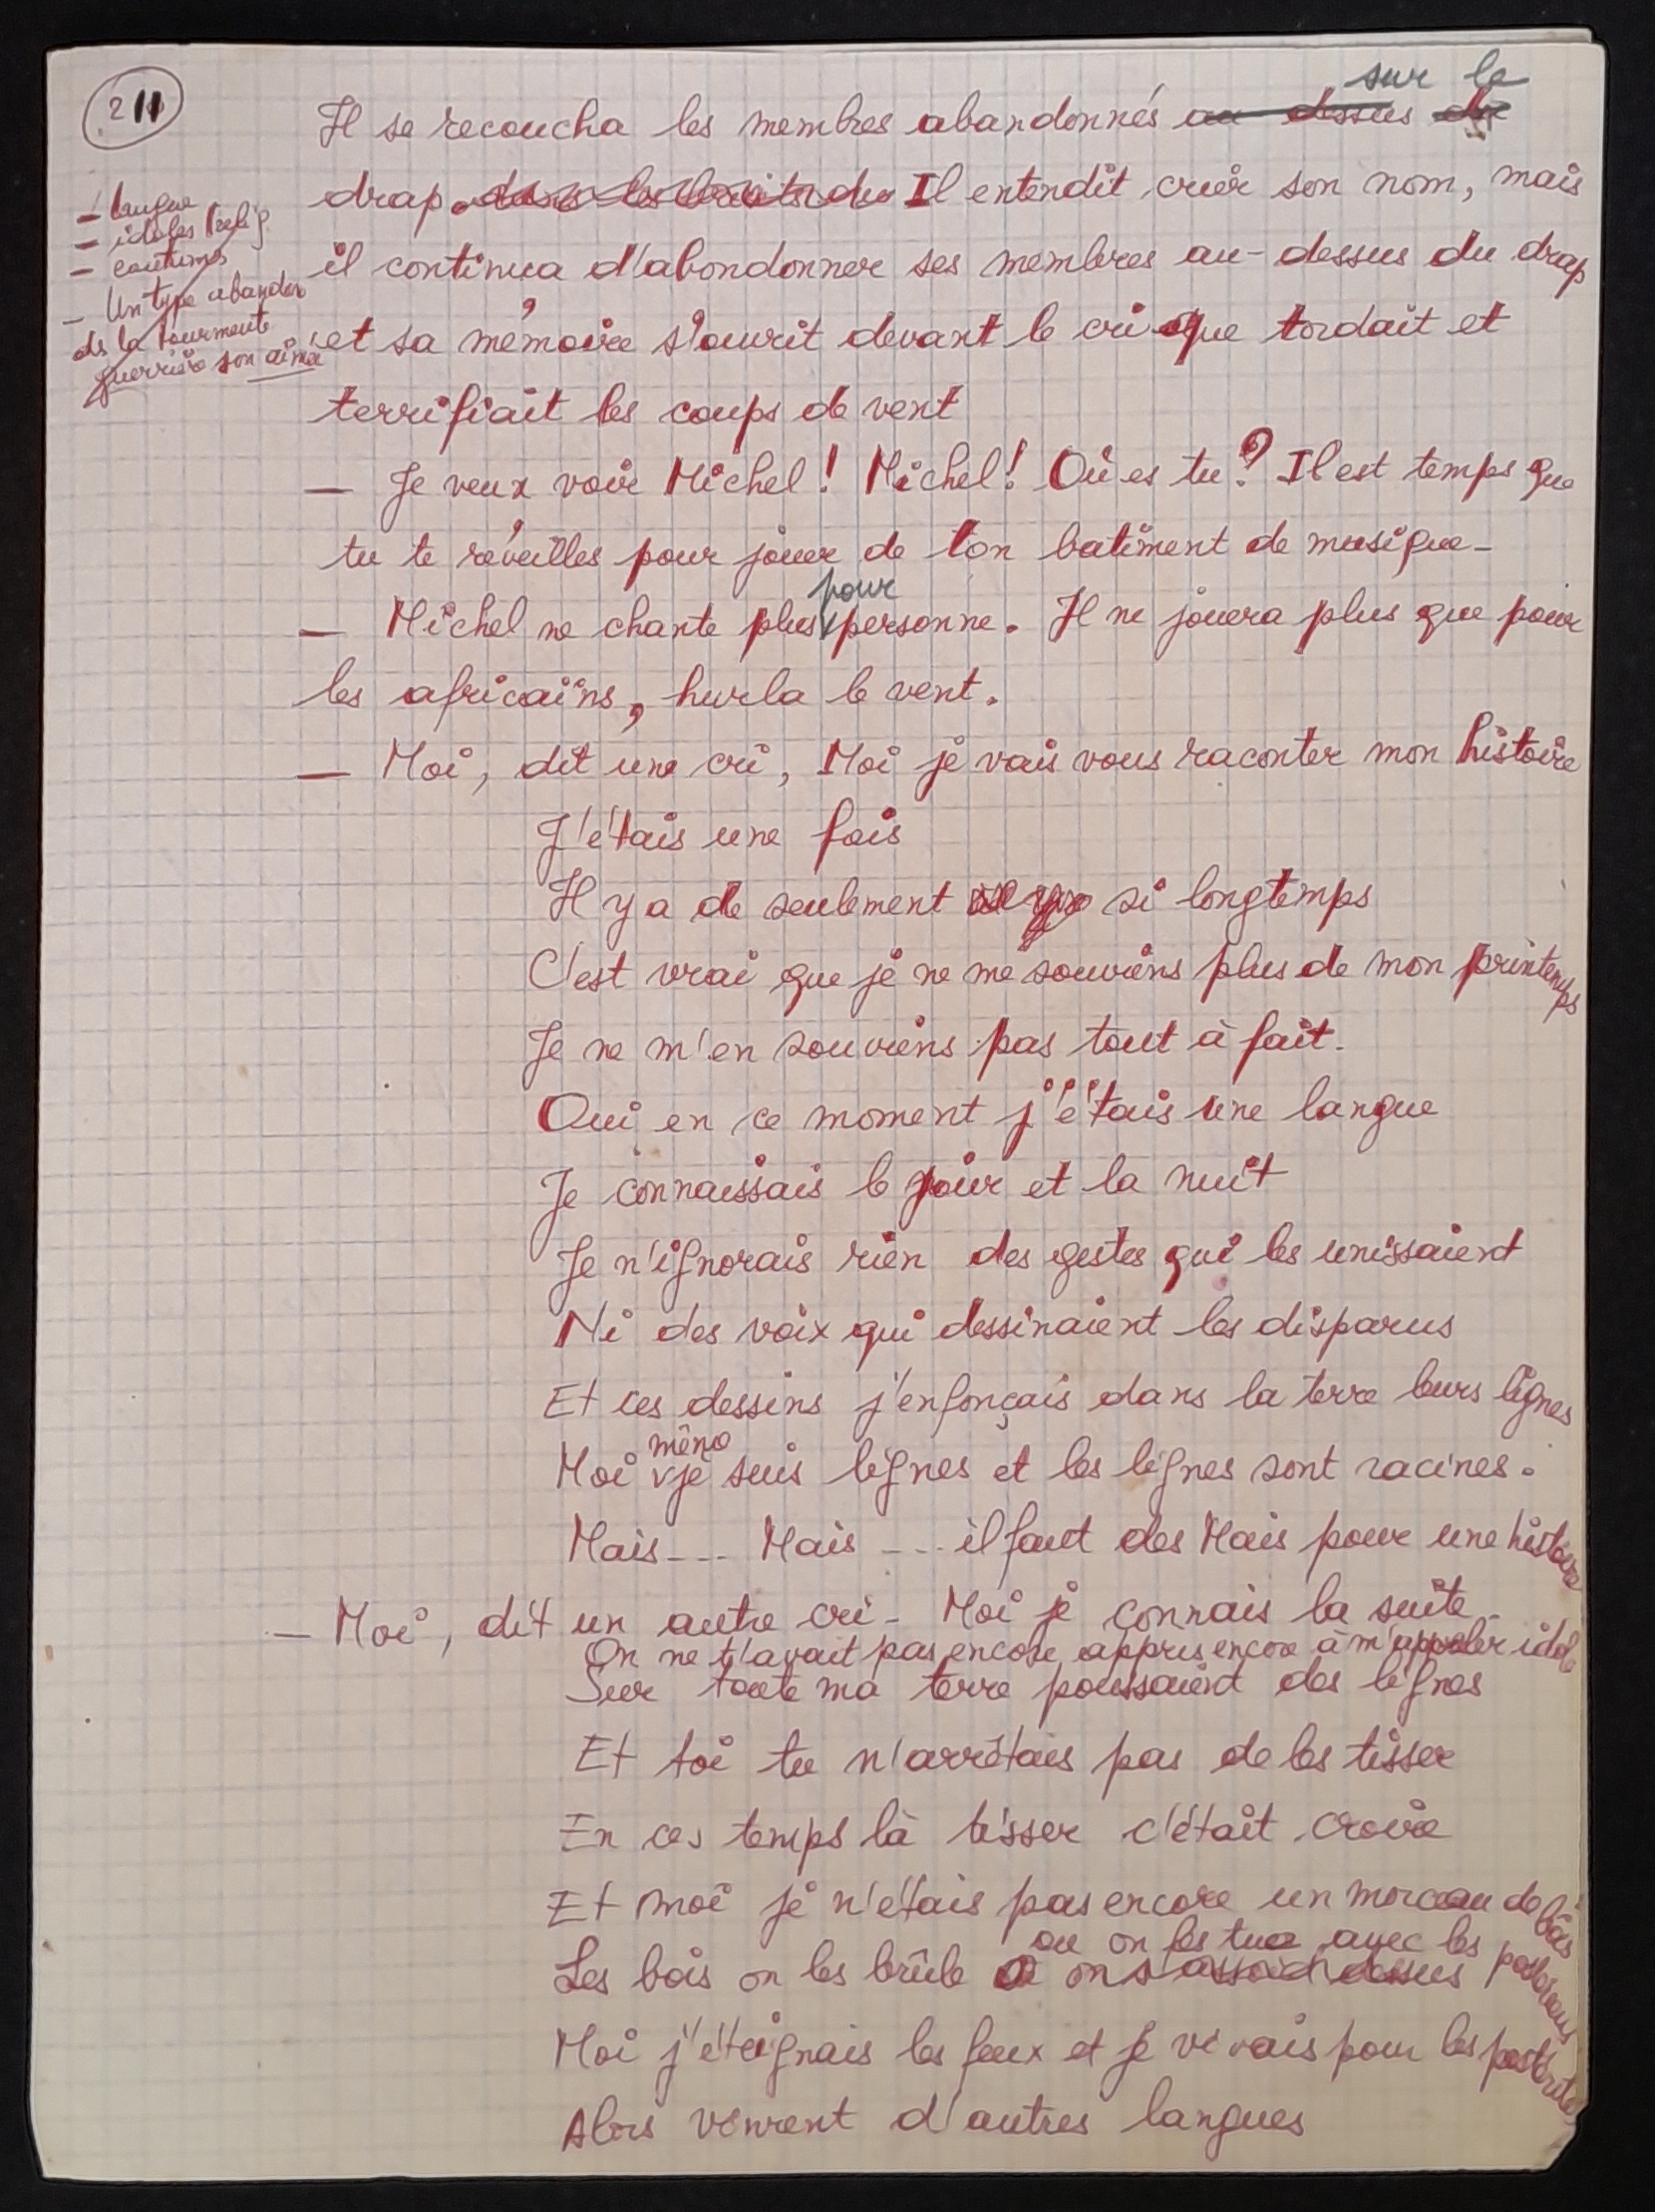 211
sur le
Il se recoucha les membres abandonnés au dessus du
drap. dans les bruits du Il entendit crier son nom, mais
- langue
- idoles (relig.
- coutumes
- Un type abandon
ds la tourmente
guerrière son aimée
il continua d'abondonner ses membres au-dessus du drap
et sa mémoire s'ouvrit devant le cri que tordait et
terrifiait les coups de vent
— Je veux voir Michel ! Michel ! Où es tu ? Il est temps que
tu te réveilles pour jouer de ton batiment de musique -
pour
— Michel ne chante plus personne. Il ne jouera plus que pour
les africains, hurla le vent.
— Moi, dit une cri, Moi je vais vous raconter mon histoire
J'étais une fois
Il y a de seulement si longtemps
C'est vrai que je ne me souviens plus de mon printemps
Je ne m'en souviens pas tout à fait.
Oui en ce moment j'étais une langue
Je connaissais le jour et la nuit
Je n'ignorais rien des gestes qui les unissaient
Ni des voix qui dessinaient les disparus
Et ces dessins j'enfonçais dans la terre leurs lignes
même
Moi je suis lignes et les lignes sont racines.
Mais --- Mais --- il faut des Mais pour une histoire
— Moi, dit un autre cri - Moi je connais la suite -
On ne t'avait pas encore appris encore à m'appeler idole
Sur toute ma terre poussaient des lignes
Et toi tu n'arrêtais pas de les tisser
En ces temps là tisser c'était croire
Et moi je n'étais pas encore un morceau de bois
ou on les tue avec les
Les bois on les brûle on s'assoid dessus
Moi j'éteignais les feux et je vivais pour les postérités
Alors vinrent d'autres langues